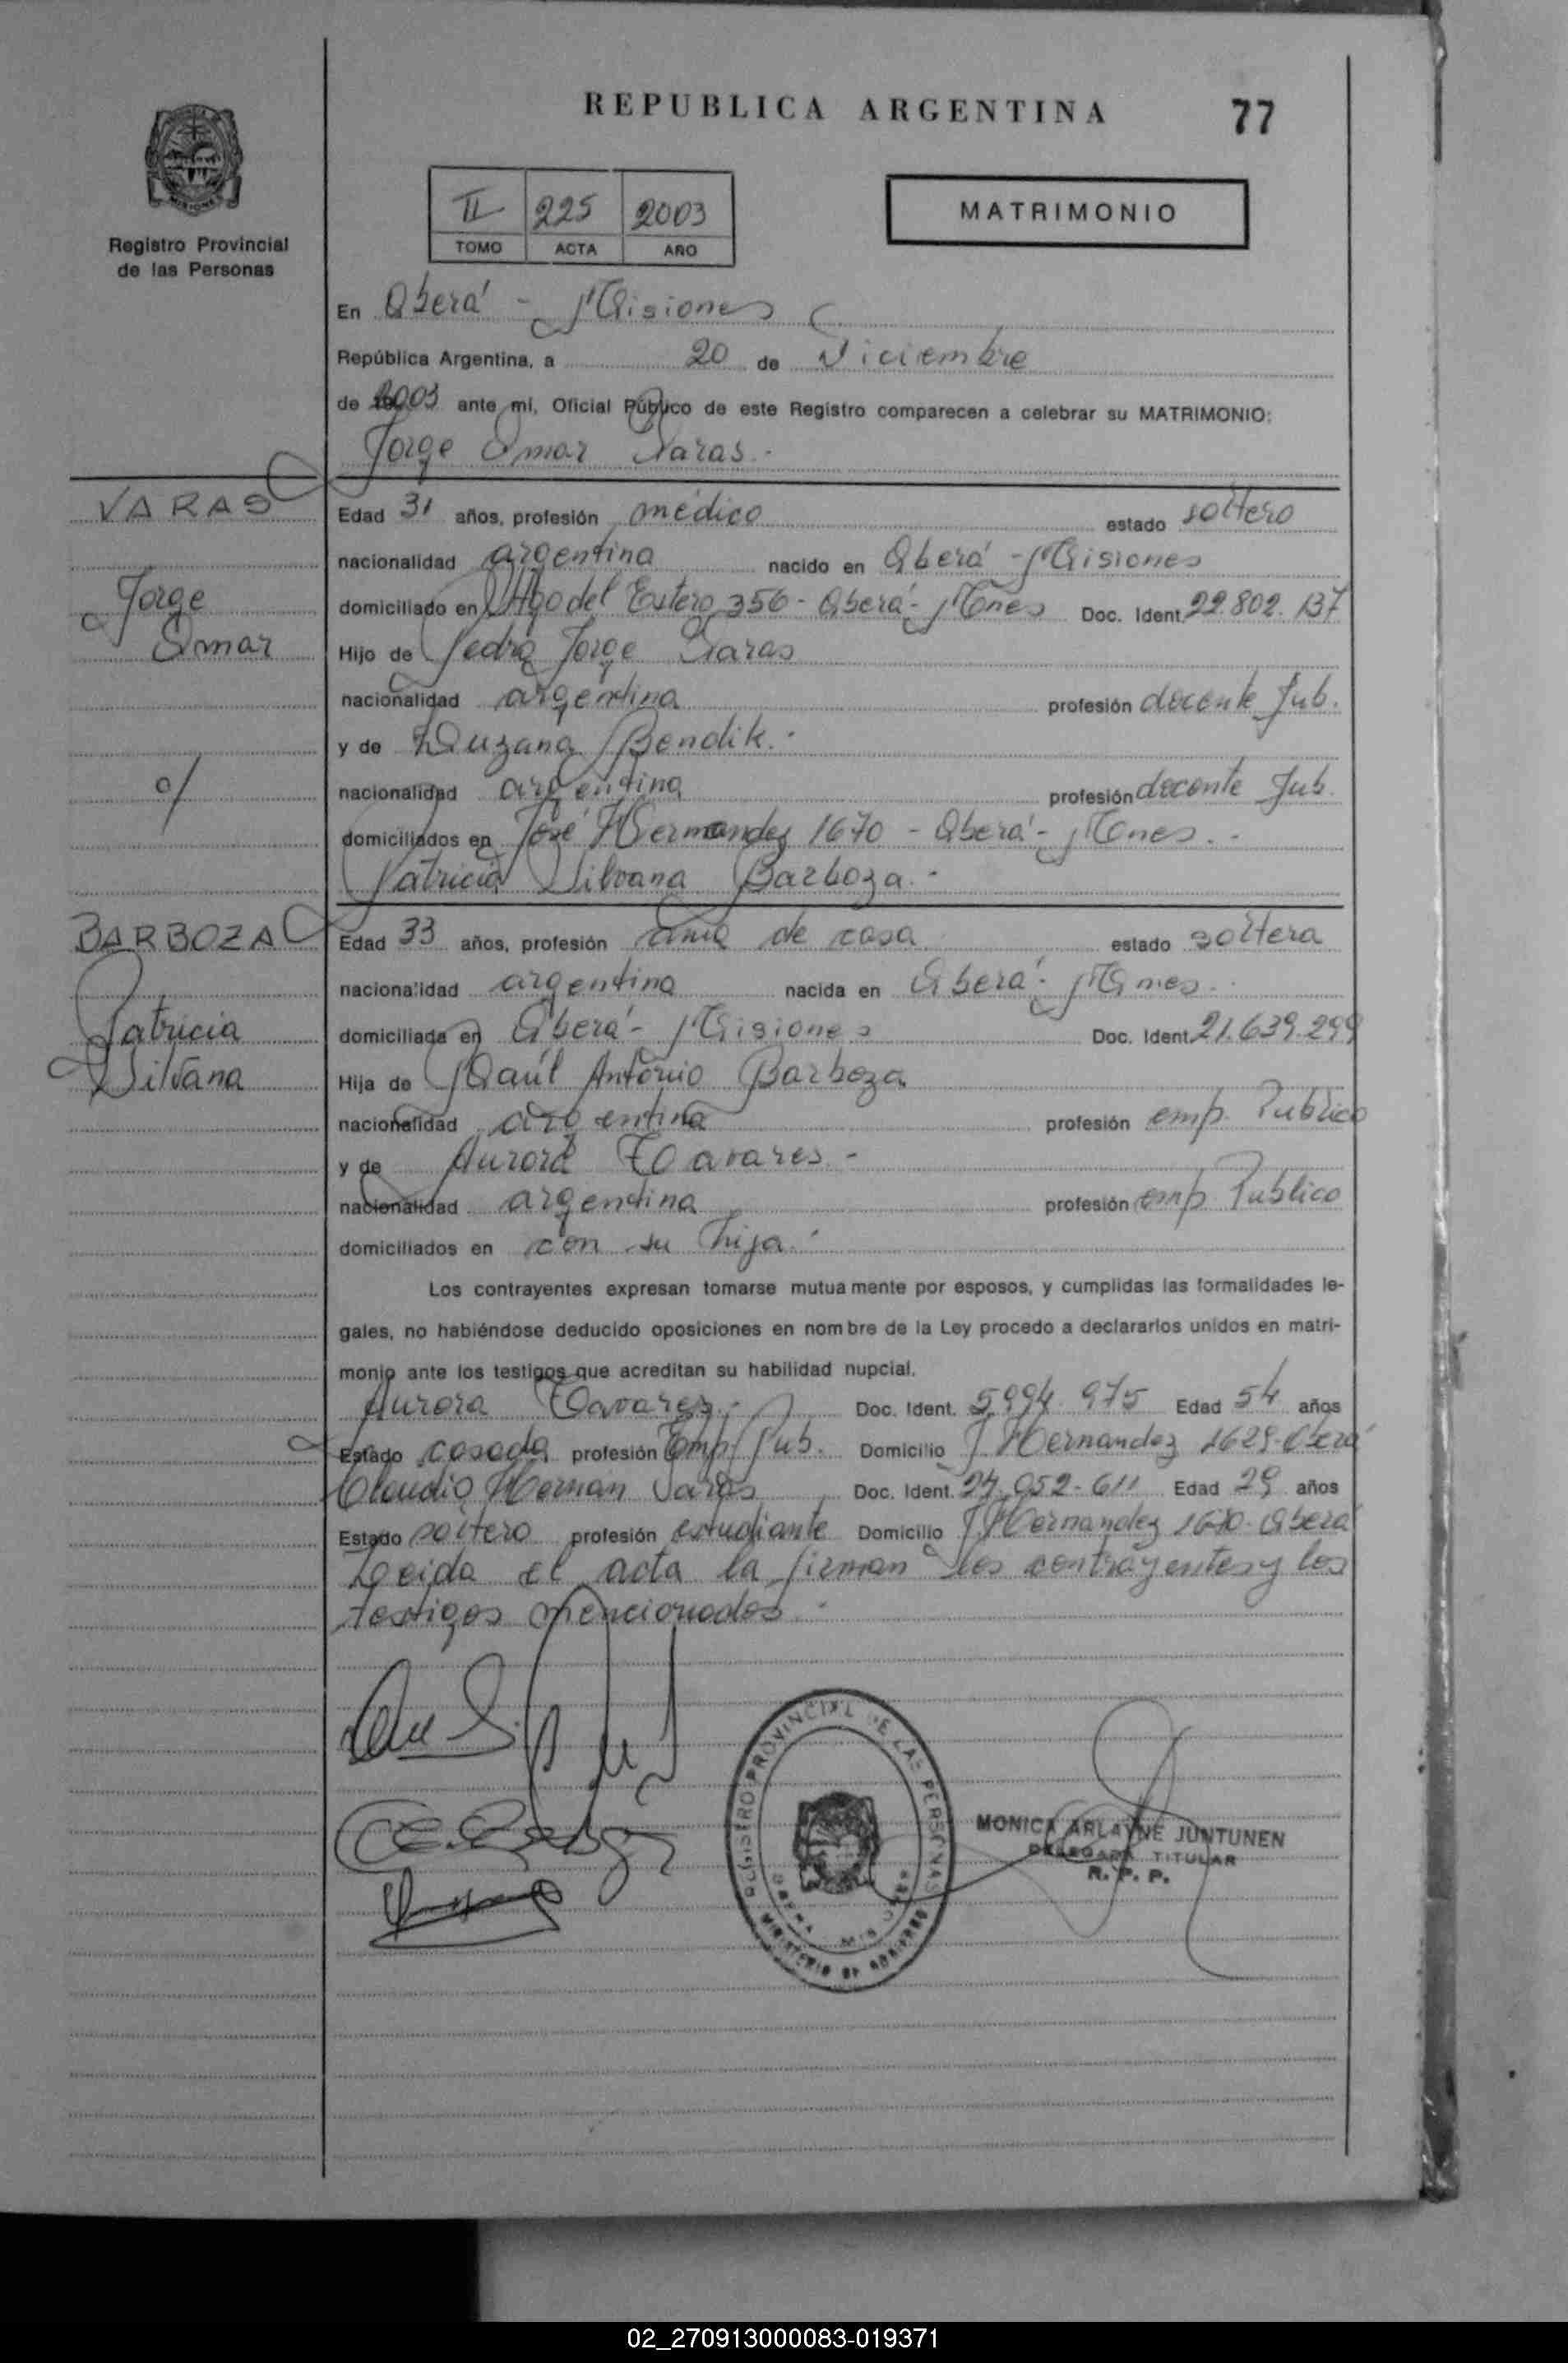 REPUBLICA ARGENTINA
77
II 225 2003
TOMO ACTA AÑO
MATRIMONIO
Registro Provincial
de las Personas
En Oberá - Misiones
República Argentina, a 20 de Diciembre
de 2003 ante mí, Oficial Público de este Registro comparecen a celebrar su MATRIMONIO:
Jorge Omar Varas.-
VARAS
Jorge
Omar
c/
Edad 31 años, profesión médico estado soltero
nacionalidad argentina nacido en Oberá - Misiones
domiciliado en Stgo del Estero 356 - Oberá - Mnes Doc. Ident. 22.802.137
Hijo de Pedro Jorge Varas
nacionalidad argentina profesión docente Jub.
y de Luzana Bendik.-
nacionalidad argentina profesión docente Jub.
domiciliados en José Hernandez 1670 - Oberá - Mnes.-
Patricia Silvana Barboza.-
BARBOZA
Patricia
Silvana
Edad 33 años, profesión ama de casa estado soltera
nacionalidad argentina nacida en Oberá - Mnes.
domiciliada en Oberá - Misiones Doc. Ident. 21.639.299
Hija de Raúl Antonio Barboza
nacionalidad argentina profesión emp. Publico
y de Aurora Tavares.-
nacionalidad argentina profesión emp. Publico
domiciliados en con su hija.-
Los contrayentes expresan tomarse mutuamente por esposos, y cumplidas las formalidades le-
gales, no habiéndose deducido oposiciones en nombre de la Ley procedo a declararlos unidos en matri-
monio ante los testigos que acreditan su habilidad nupcial.
Aurora Tavares.- Doc. Ident. 5.994.975 Edad 54 años
Estado casada profesión Emp. Pub. Domicilio J. Hernandez 1629-Oberá
Claudio Hernán Varas Doc. Ident. 24.052.611 Edad 29 años
Estado soltero profesión estudiante Domicilio J. Hernandez 1670-Oberá
Leida el acta la firman los contrayentes y los
testigos mencionados.-
REGISTRO PROVINCIAL DE LAS PERSONAS
MINISTERIO DE GOBIERNO
MONICA ARLAYNE JUNTUNEN
DELEGADA TITULAR
R. P. P.
02_270913000083-019371